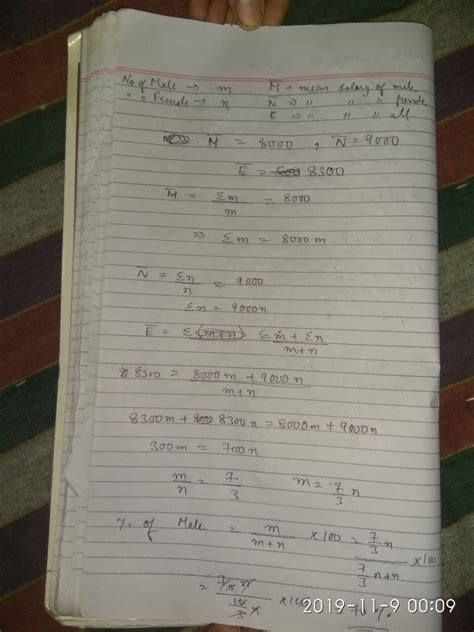 No of Male → m M̄ → mean salary of male
" " Female → n N̄ ⇒ " " " female
E ⇒ " " " all
M̄ = 8000 , N̄ = 9000
Ē = 8300
M̄ = Σm/m = 8000
⇒ Σm = 8000m
N̄ = Σn/n = 9000
Σn = 9000n
Ē = Σ(m+n) Σm + Σn / m+n
8300 = 8000m + 9000n / m+n
8300m + 8300n = 8000m + 9000n
300m = 700n
m/n = 7/3 m = 7/3 n
% of Male = m/m+n × 100 = 7/3 n / 7/3 n+n × 100
= 7/3 n / 10/3 n × 100
2019-11-9 00:09